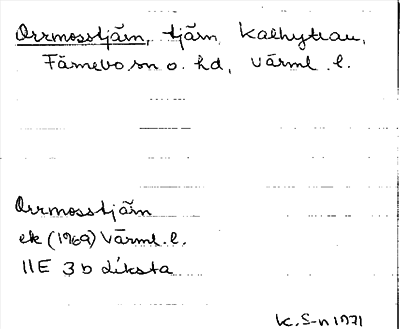 Orrmosstjärn, tjärn, Kalhyttan,
Färnebo sn o. hd, Värml. l.
Orrmosstjärn
ek (1969) Värml. l.
11E 3b Liksta
K. S-n 1971